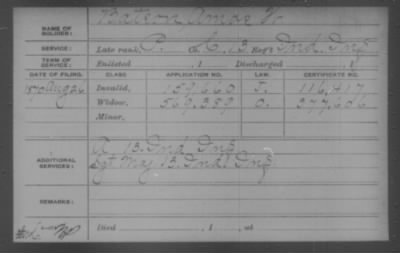 NAME OF SOLDIER: Batson Amos W.
SERVICE: Late rank, P. Co. C, 13 Reg't Ind. Inf
TERM OF SERVICE: Enlisted , 1 Discharged , 1
DATE OF FILING. CLASS APPLICATION NO. LAW. CERTIFICATE NO.
Aug 26 Invalid, 159,660 116,417
Widow, 569,389 377,606
Minor,
ADDITIONAL SERVICES: A. 13. Ind. Inf.
Sgt. Maj 13. Ind. Inf.
REMARKS:
Died , 1 , at